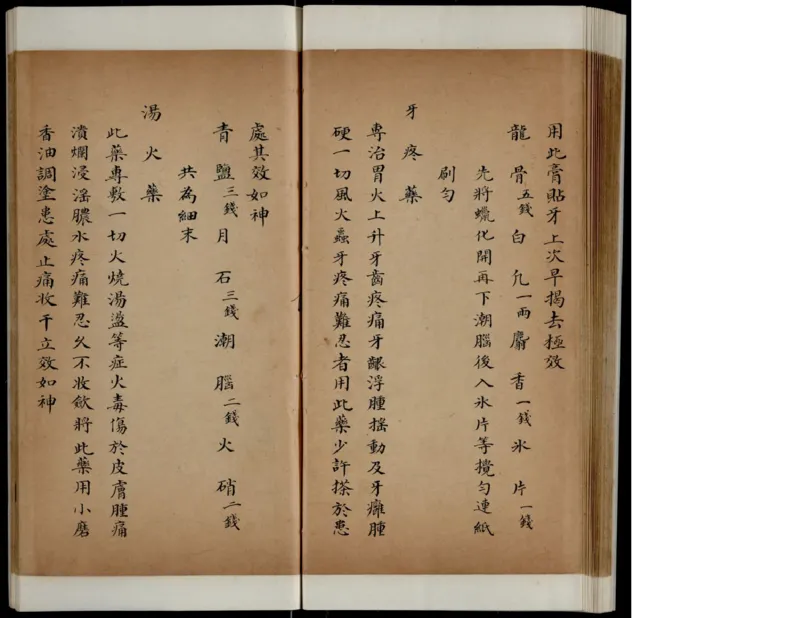 用此膏貼牙上次早揭去極效
龍骨五錢白凡一兩麝香一錢氷片一錢
先將蠟化開再下潮腦後入氷片等攪勻連紙
刷勻
牙疼藥
專治胃火上升牙齒疼痛牙齦浮腫搖動及牙癰腫
硬一切風火蟲牙疼痛難忍者用此藥少許搽於患
處其效如神
青鹽三錢月石三錢潮腦二錢火硝二錢
共為細末
湯火藥
此藥專敷一切火燒湯盪等症火毒傷於皮膚腫痛
潰爛浸滛膿水疼痛難忍久不收歛將此藥用小磨
香油調塗患處止痛收干立效如神